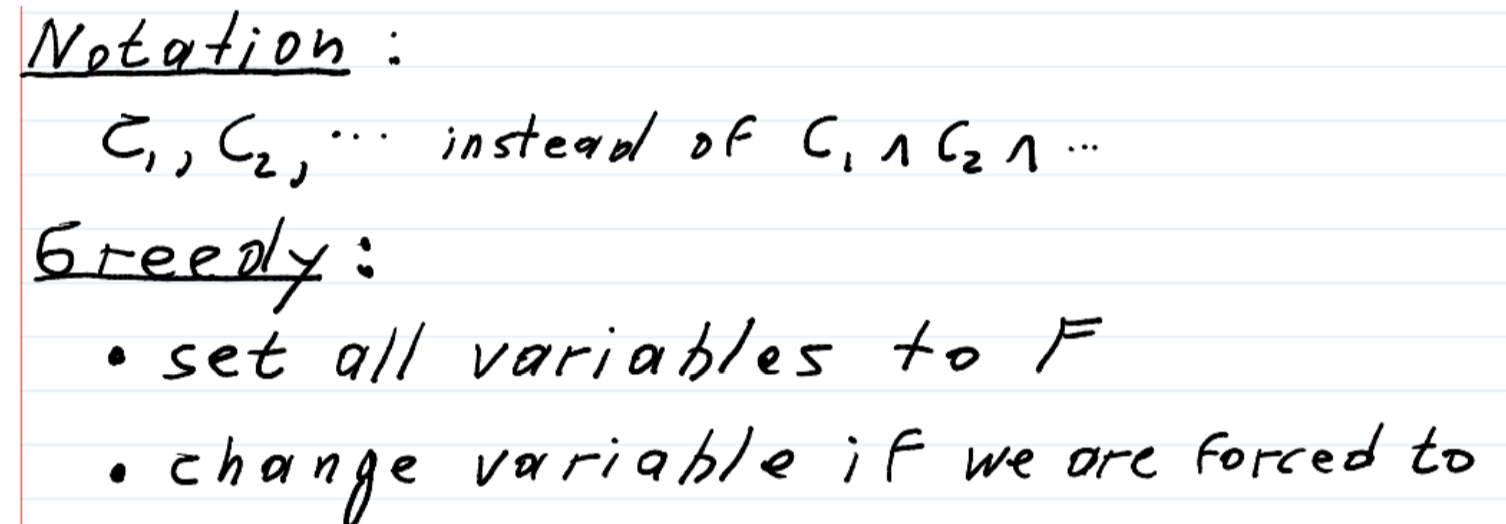 Notation :
C₁, C₂, ... instead of C₁ ∧ C₂ ∧ ...
Greedy :
• set all variables to F
• change variable if we are forced to